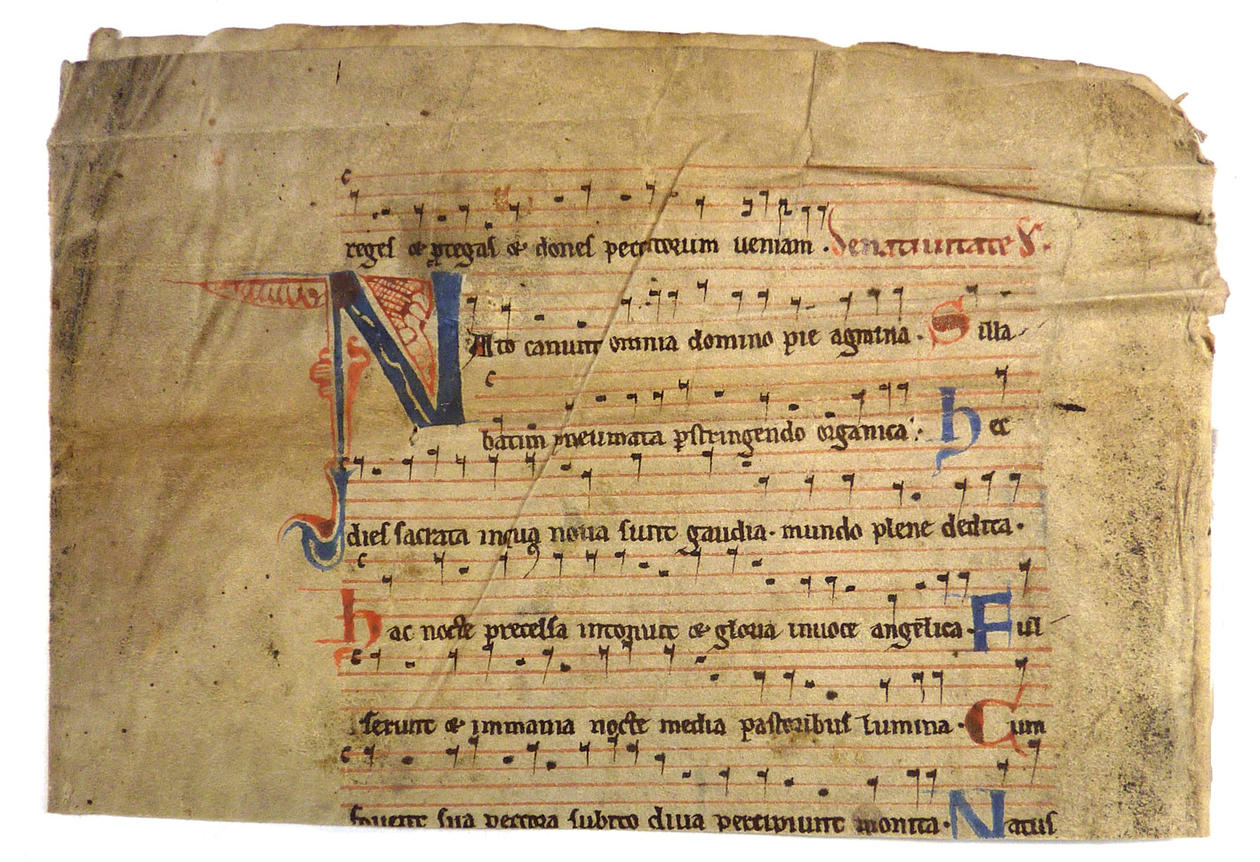 reges ⁊ ꝓtegas ⁊ dones peccatorum ueniam . De natiuitate
NAto canunt omnia domino pie agmina. Silla
batim pneumata ꝑstringendo organica. hec
dies sacrata inqua noua sunt gaudia. mundo plene dedita.
hac nocte precelsa intonuit ⁊ gloria inuoce angelica. Ful
serunt ⁊ immania nocte media pastoribus lumina. Cum
fouent sua pectora subito diua percipiunt monita. Natus